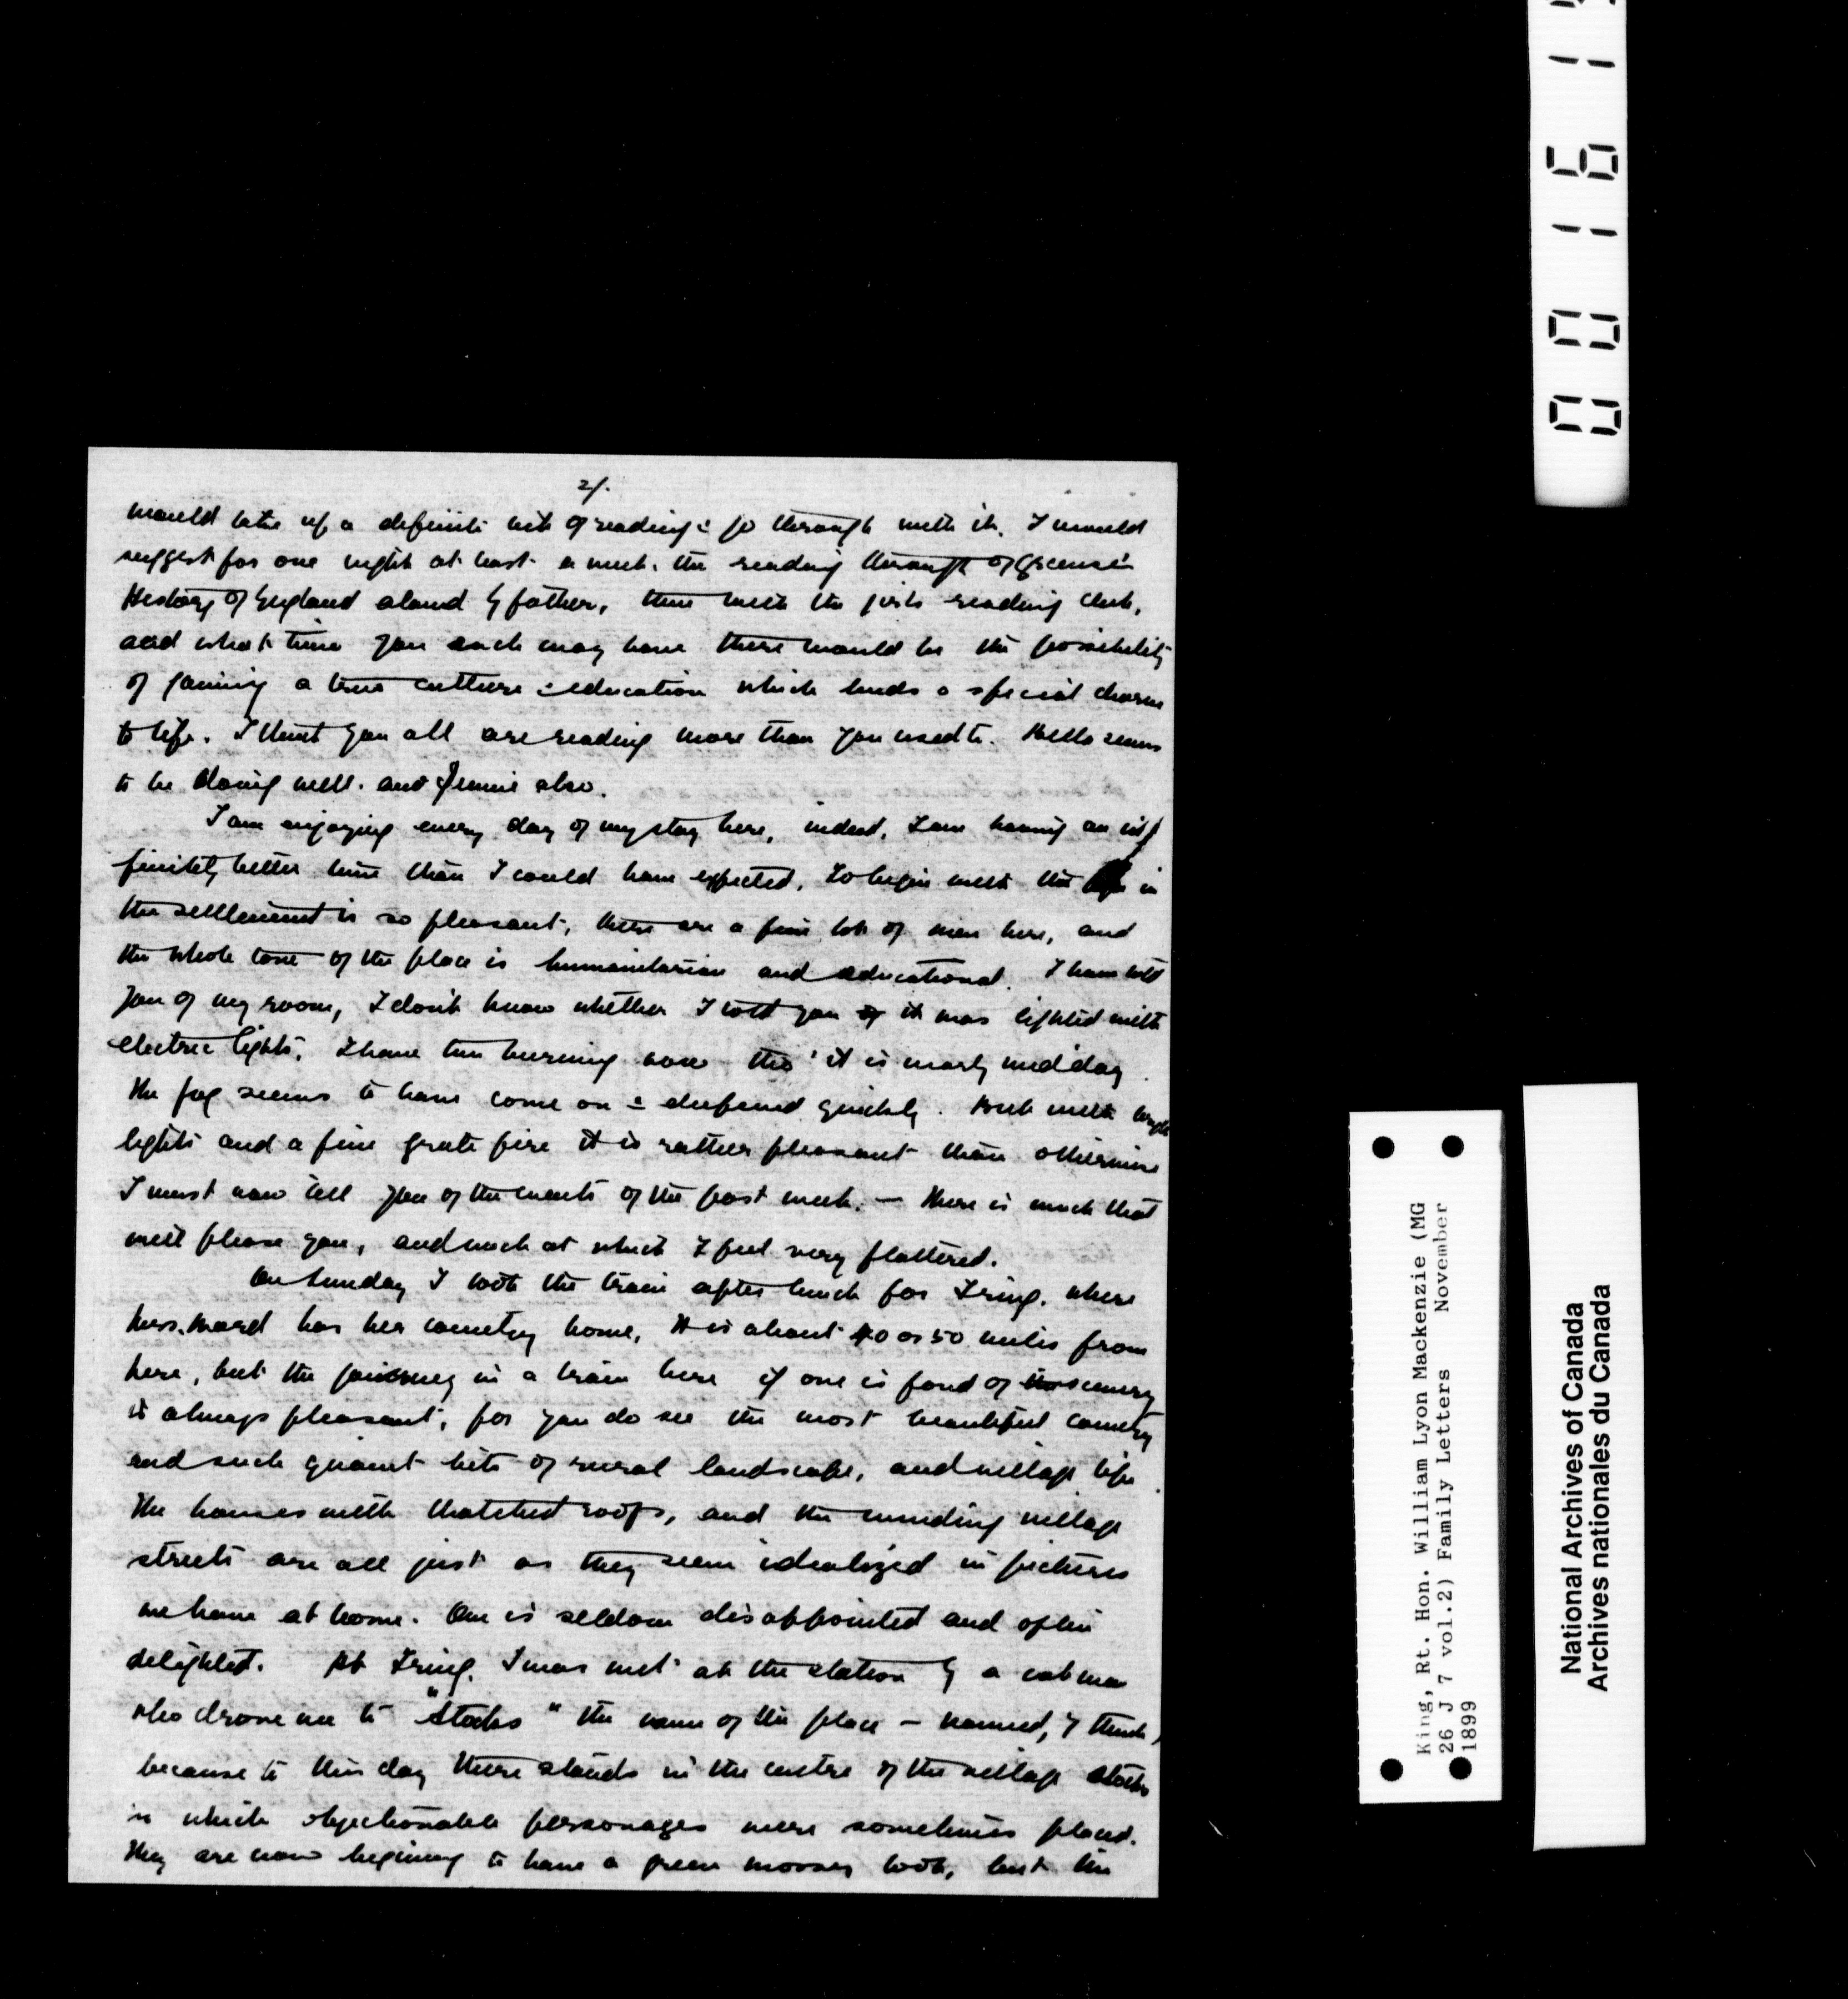 2/.
would take up a definite bit of reading & go through with it. I would
suggest for one night at least a week, the reading through of Green's
History of England aloud by father, then with the girls reading club,
and what time you each may have there would be the possibility
of gaining a true culture & education which lends a special charm
to life. I think you all are reading more than you used to. Bella seems
to be doing well. and Jennie also.
I am enjoying every day of my stay here, indeed, I am having an in
finitely better time than I could have expected. To begin with the life in
the settlement is so pleasant, there are a fine lot of men here, and
the whole tone of the place is humanitarian and educational. I have told
you of my room, I don't know whether I told you it was lighted with
electric lights. I have two burning now tho' it is nearly midday.
The fog seems to have come on & deepened quickly. But with bright
lights and a fine grate fire it is rather pleasant than otherwise
I must now tell you of the events of the past week. — there is much that
will please you, and much at which I feel very flattered.
On Sunday I took the train after lunch for Tring, where
Mrs. Ward has her country home. It is about 40 or 50 miles from
here, but the journey in a train here if one is fond of scenery
is always pleasant, for you do see the most beautiful country
and such quaint bits of rural landscape, and village life.
The houses with thatched roofs, and the winding village
streets are all just as they seem idealized in pictures
we have at home. One is seldom disappointed and often
delighted. At Tring, I was met at the station by a cabman
who drove me to "Stocks" the name of the place — named, I think,
because to this day there stands in the centre of the village stocks
in which objectionable personages were sometimes placed.
They are now begining to have a green mossey look, but the
00161
King, Rt. Hon. William Lyon Mackenzie (MG
26 J 7 vol.2) Family Letters November
1899
National Archives of Canada
Archives nationales du Canada